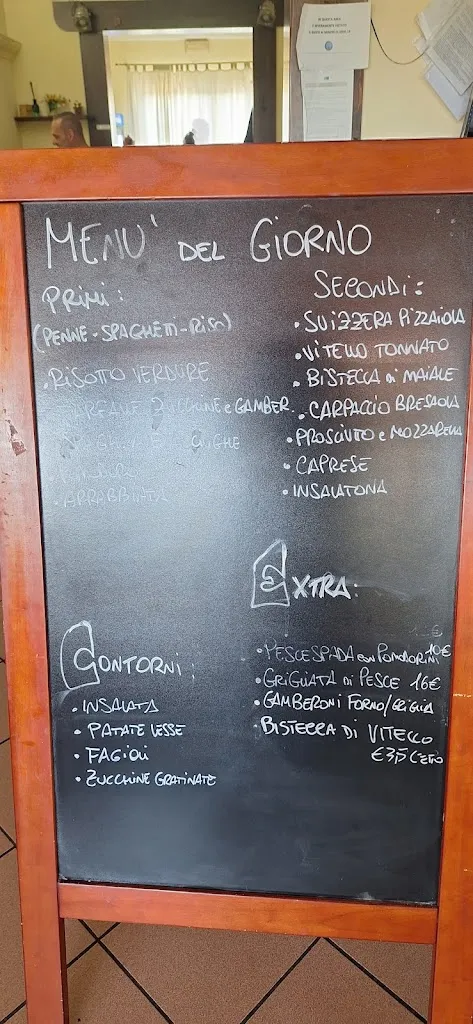 MENU' DEL GIORNO
PRIMI:
(PENNE-SPAGHETTI-RISO)
• RISOTTO VERDURE
ZUCCHINE e GAMBER.
ARRABBIATA
SECONDI:
• SVIZZERA PIZZAIOLA
• VITELLO TONNATO
• BISTECCA DI MAIALE
• CARPACCIO BRESAOLA
• PROSCIUTTO e MOZZARELLA
• CAPRESE
• INSALATONA
CONTORNI:
• INSALATA
• PATATE LESSE
• FAGIOLI
• ZUCCHINE GRATINATE
EXTRA:
• PESCE SPADA con POMODORINI 10€
• GRIGLIATA DI PESCE 16€
• GAMBERONI FORNO/GRIGLIA
BISTECCA DI VITELLO
€3,5 L'ETTO